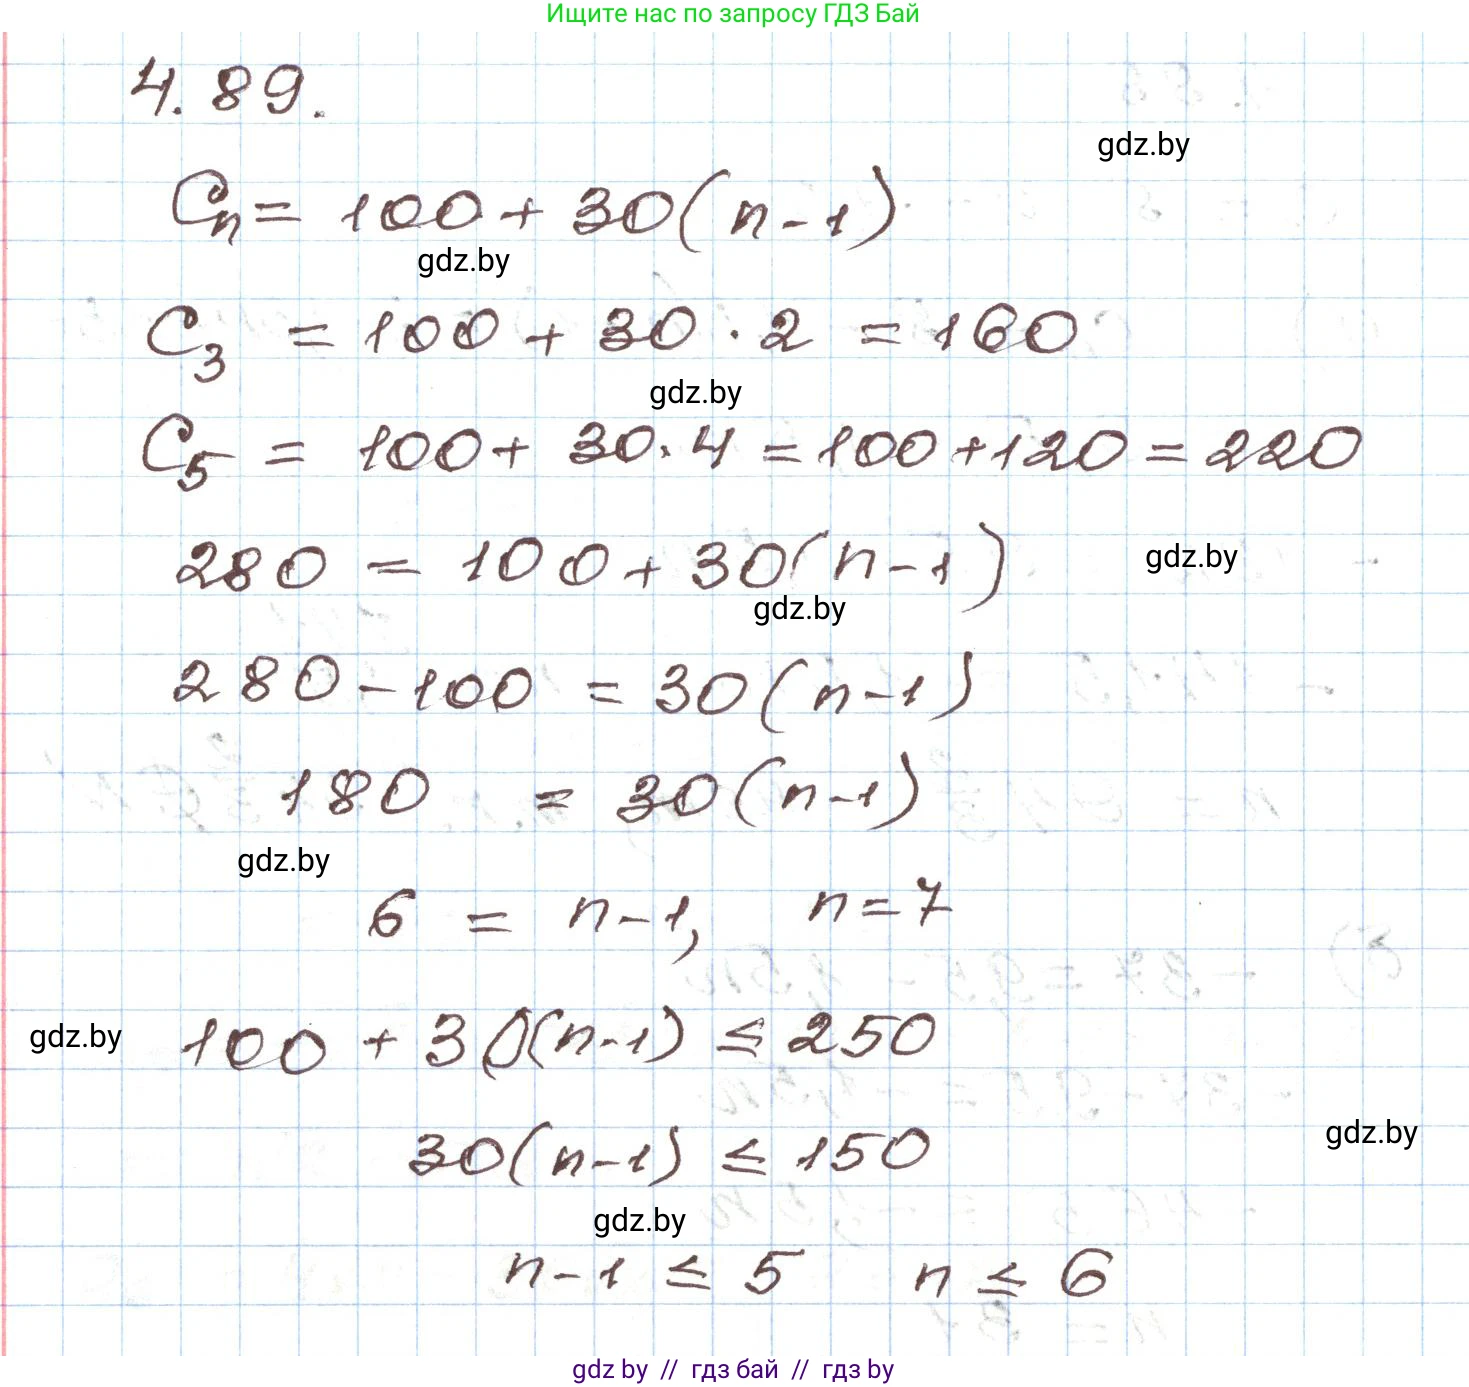 Ищите нас по запросу ГДЗ Бай
4.89.
gdz.by
Cₙ = 100 + 30(n-1)
gdz.by
C₃ = 100 + 30 · 2 = 160
gdz.by
C₅ = 100 + 30 · 4 = 100 + 120 = 220
280 = 100 + 30(n-1)
gdz.by
gdz.by
280 - 100 = 30(n-1)
180 = 30(n-1)
gdz.by
6 = n-1, n=7
gdz.by
100 + 30(n-1) ≤ 250
gdz.by
30(n-1) ≤ 150
gdz.by
n-1 ≤ 5 n ≤ 6
gdz by // гдз бай // гдз by